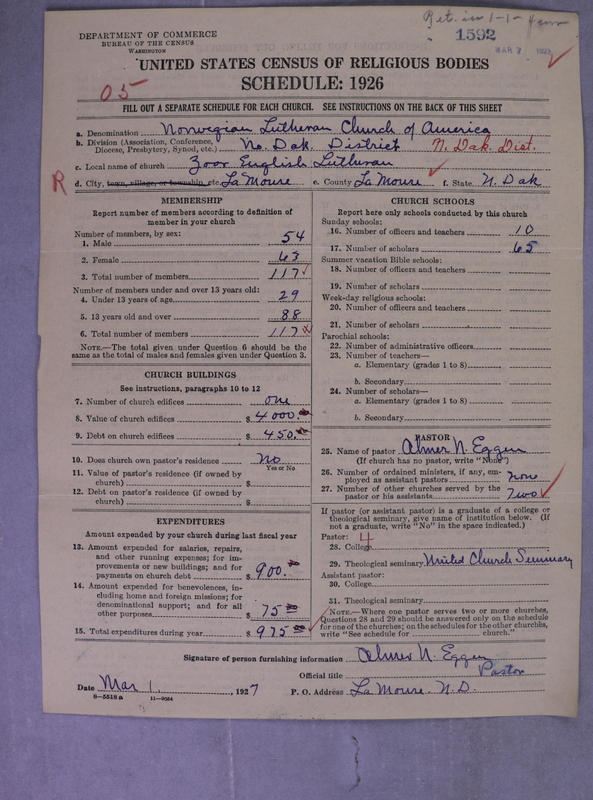 Ret. in 1-1-
1592
MAR 7 1927
DEPARTMENT OF COMMERCE
BUREAU OF THE CENSUS
WASHINGTON
UNITED STATES CENSUS OF RELIGIOUS BODIES
SCHEDULE: 1926
05
FILL OUT A SEPARATE SCHEDULE FOR EACH CHURCH. SEE INSTRUCTIONS ON THE BACK OF THIS SHEET
a. Denomination Norwegian Lutheran Church of America
b. Division (Association, Conference, Diocese, Presbytery, Synod, etc.) No. Dak. District N. Dak. Dist.
c. Local name of church Zoar English Lutheran
R
d. City, town, village, or township, etc. La Moure e. County La Moure f. State N. Dak
MEMBERSHIP
Report number of members according to definition of
member in your church
Number of members, by sex:
1. Male 54
2. Female 63
3. Total number of members 117
Number of members under and over 13 years old:
4. Under 13 years of age 29
5. 13 years old and over 88
6. Total number of members 117
NOTE.—The total given under Question 6 should be the
same as the total of males and females given under Question 3.
CHURCH BUILDINGS
See instructions, paragraphs 10 to 12
7. Number of church edifices one
8. Value of church edifices $ 4000.00
9. Debt on church edifices $ 450.00
10. Does church own pastor's residence No
Yes or No
11. Value of pastor's residence (if owned by
church) $
12. Debt on pastor's residence (if owned by
church) $
EXPENDITURES
Amount expended by your church during last fiscal year
13. Amount expended for salaries, repairs,
and other running expenses; for im-
provements or new buildings; and for
payments on church debt $ 900.00
14. Amount expended for benevolences, in-
cluding home and foreign missions; for
denominational support; and for all
other purposes $ 75.00
15. Total expenditures during year $ 975.00
CHURCH SCHOOLS
Report here only schools conducted by this church
Sunday schools:
16. Number of officers and teachers 10
17. Number of scholars 65
Summer vacation Bible schools:
18. Number of officers and teachers
19. Number of scholars
Week-day religious schools:
20. Number of officers and teachers
21. Number of scholars
Parochial schools:
22. Number of administrative officers
23. Number of teachers—
a. Elementary (grades 1 to 8)
b. Secondary
24. Number of scholars—
a. Elementary (grades 1 to 8)
b. Secondary
PASTOR
25. Name of pastor Almer N. Eggen
(If church has no pastor, write "None")
26. Number of ordained ministers, if any, em-
ployed as assistant pastors none
27. Number of other churches served by the
pastor or his assistants Two
If pastor (or assistant pastor) is a graduate of a college or
theological seminary, give name of institution below. (If
not a graduate, write "No" in the space indicated.)
Pastor: 4
28. College
29. Theological seminary United Church Seminary
Assistant pastor:
30. College
31. Theological seminary
NOTE.—Where one pastor serves two or more churches,
Questions 28 and 29 should be answered only on the schedule
for one of the churches; on the schedules for the other churches,
write "See schedule for church."
Signature of person furnishing information Almer N. Eggen
Official title Pastor
Date Mar 1, 1927 P. O. Address La Moure. N.D.
8—5518a 11—9034